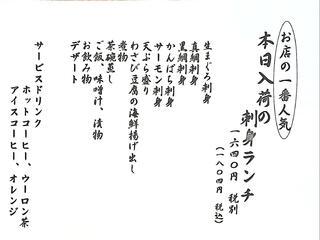 お店の一番人気
本日入荷の
刺身ランチ
一六四〇円 税別
(一八〇四円 税込)
生まぐろ刺身
真鯛刺身
黒鯛刺身
かんぱち刺身
サーモン刺身
天ぷら盛り
わさび豆腐の海鮮揚げ出し
煮物
茶碗蒸し
ご飯、味噌汁、漬物
お飲み物
デザート
サービスドリンク
ホットコーヒー、ウーロン茶
アイスコーヒー、オレンジ